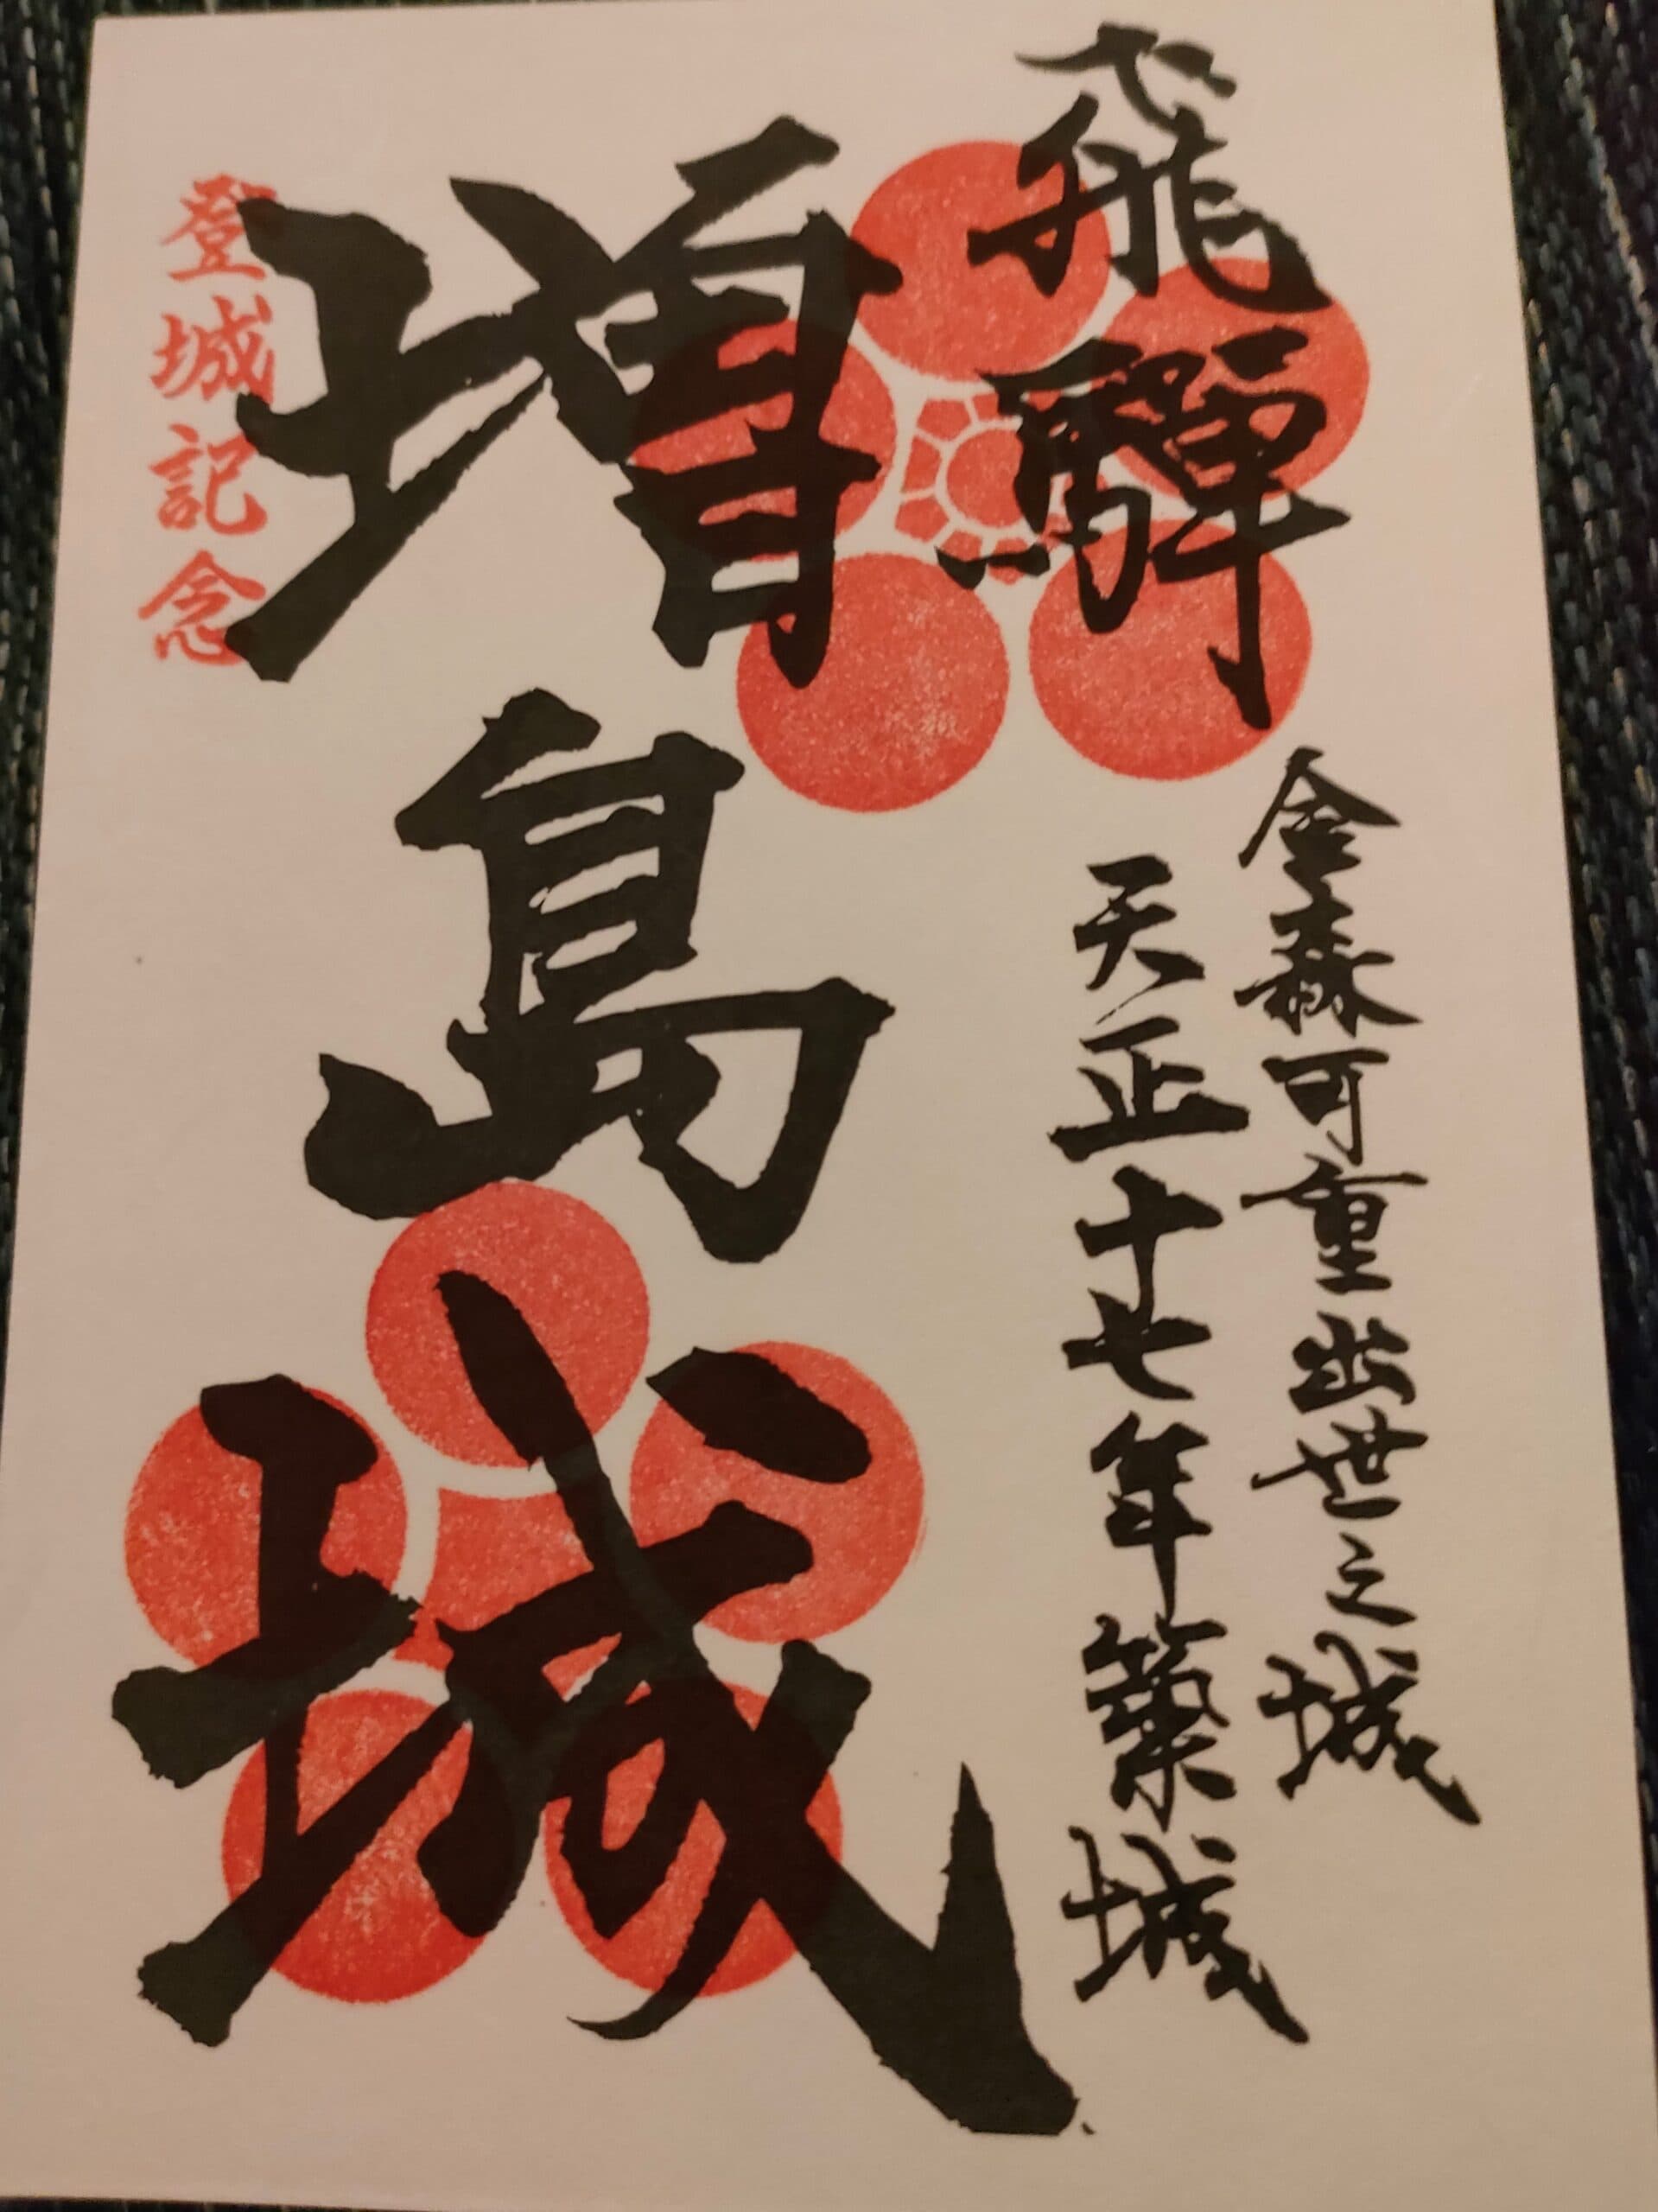 飛騨
金森可重出世之城
天正十七年築城
増島城
登城記念